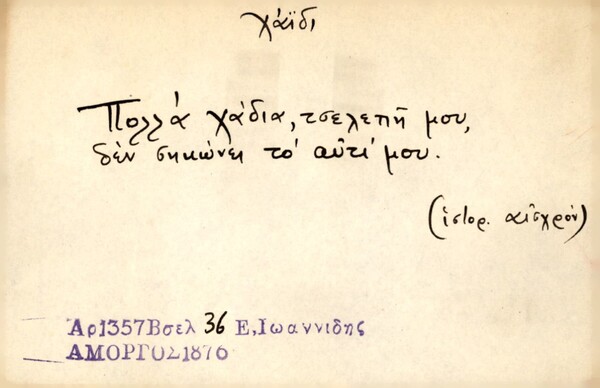 χάϊδι
Πολλά χάδια, τσελεπῆ μου,
δὲν σηκώνει τὸ αὐτί μου.
(ἱστορ. αἰσχρόν)
Ἀρ1357Βσελ 36 Ε,Ιωαννιδης
ΑΜΟΡΓΟΣ1876